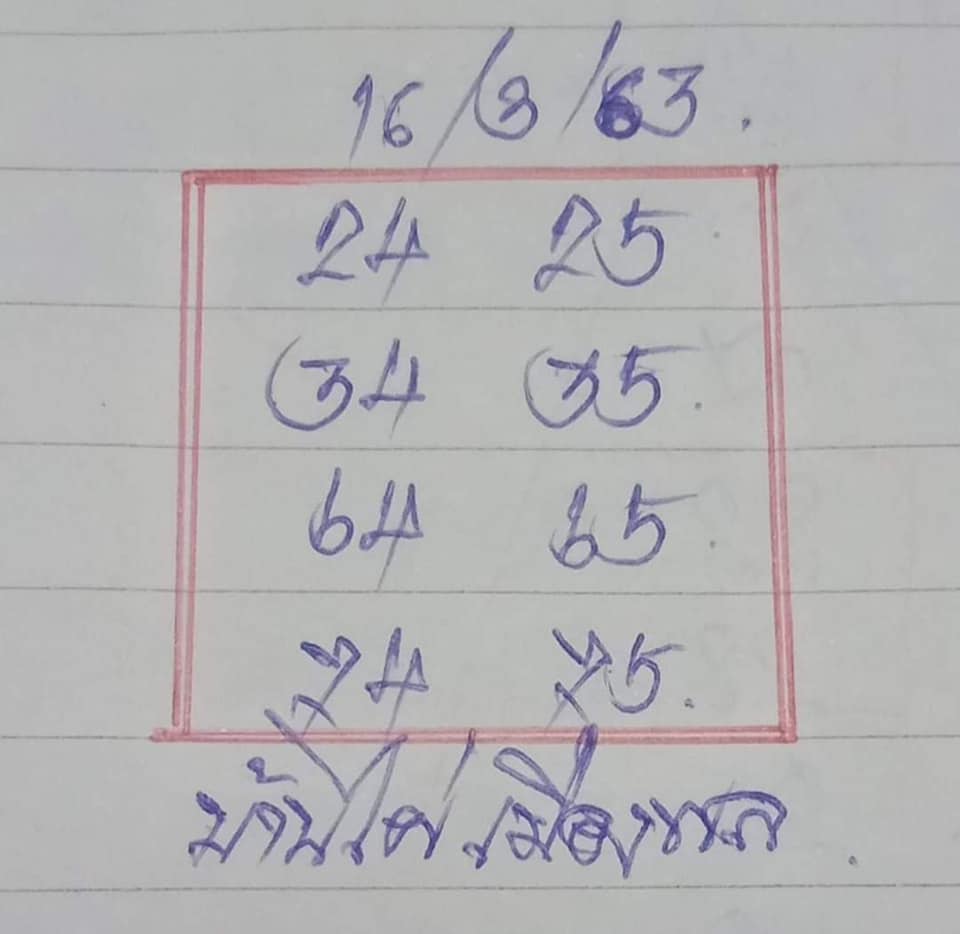 16/3/63.
24 25
34 35
64 65
74 75
บ้านไผ่เมืองพล